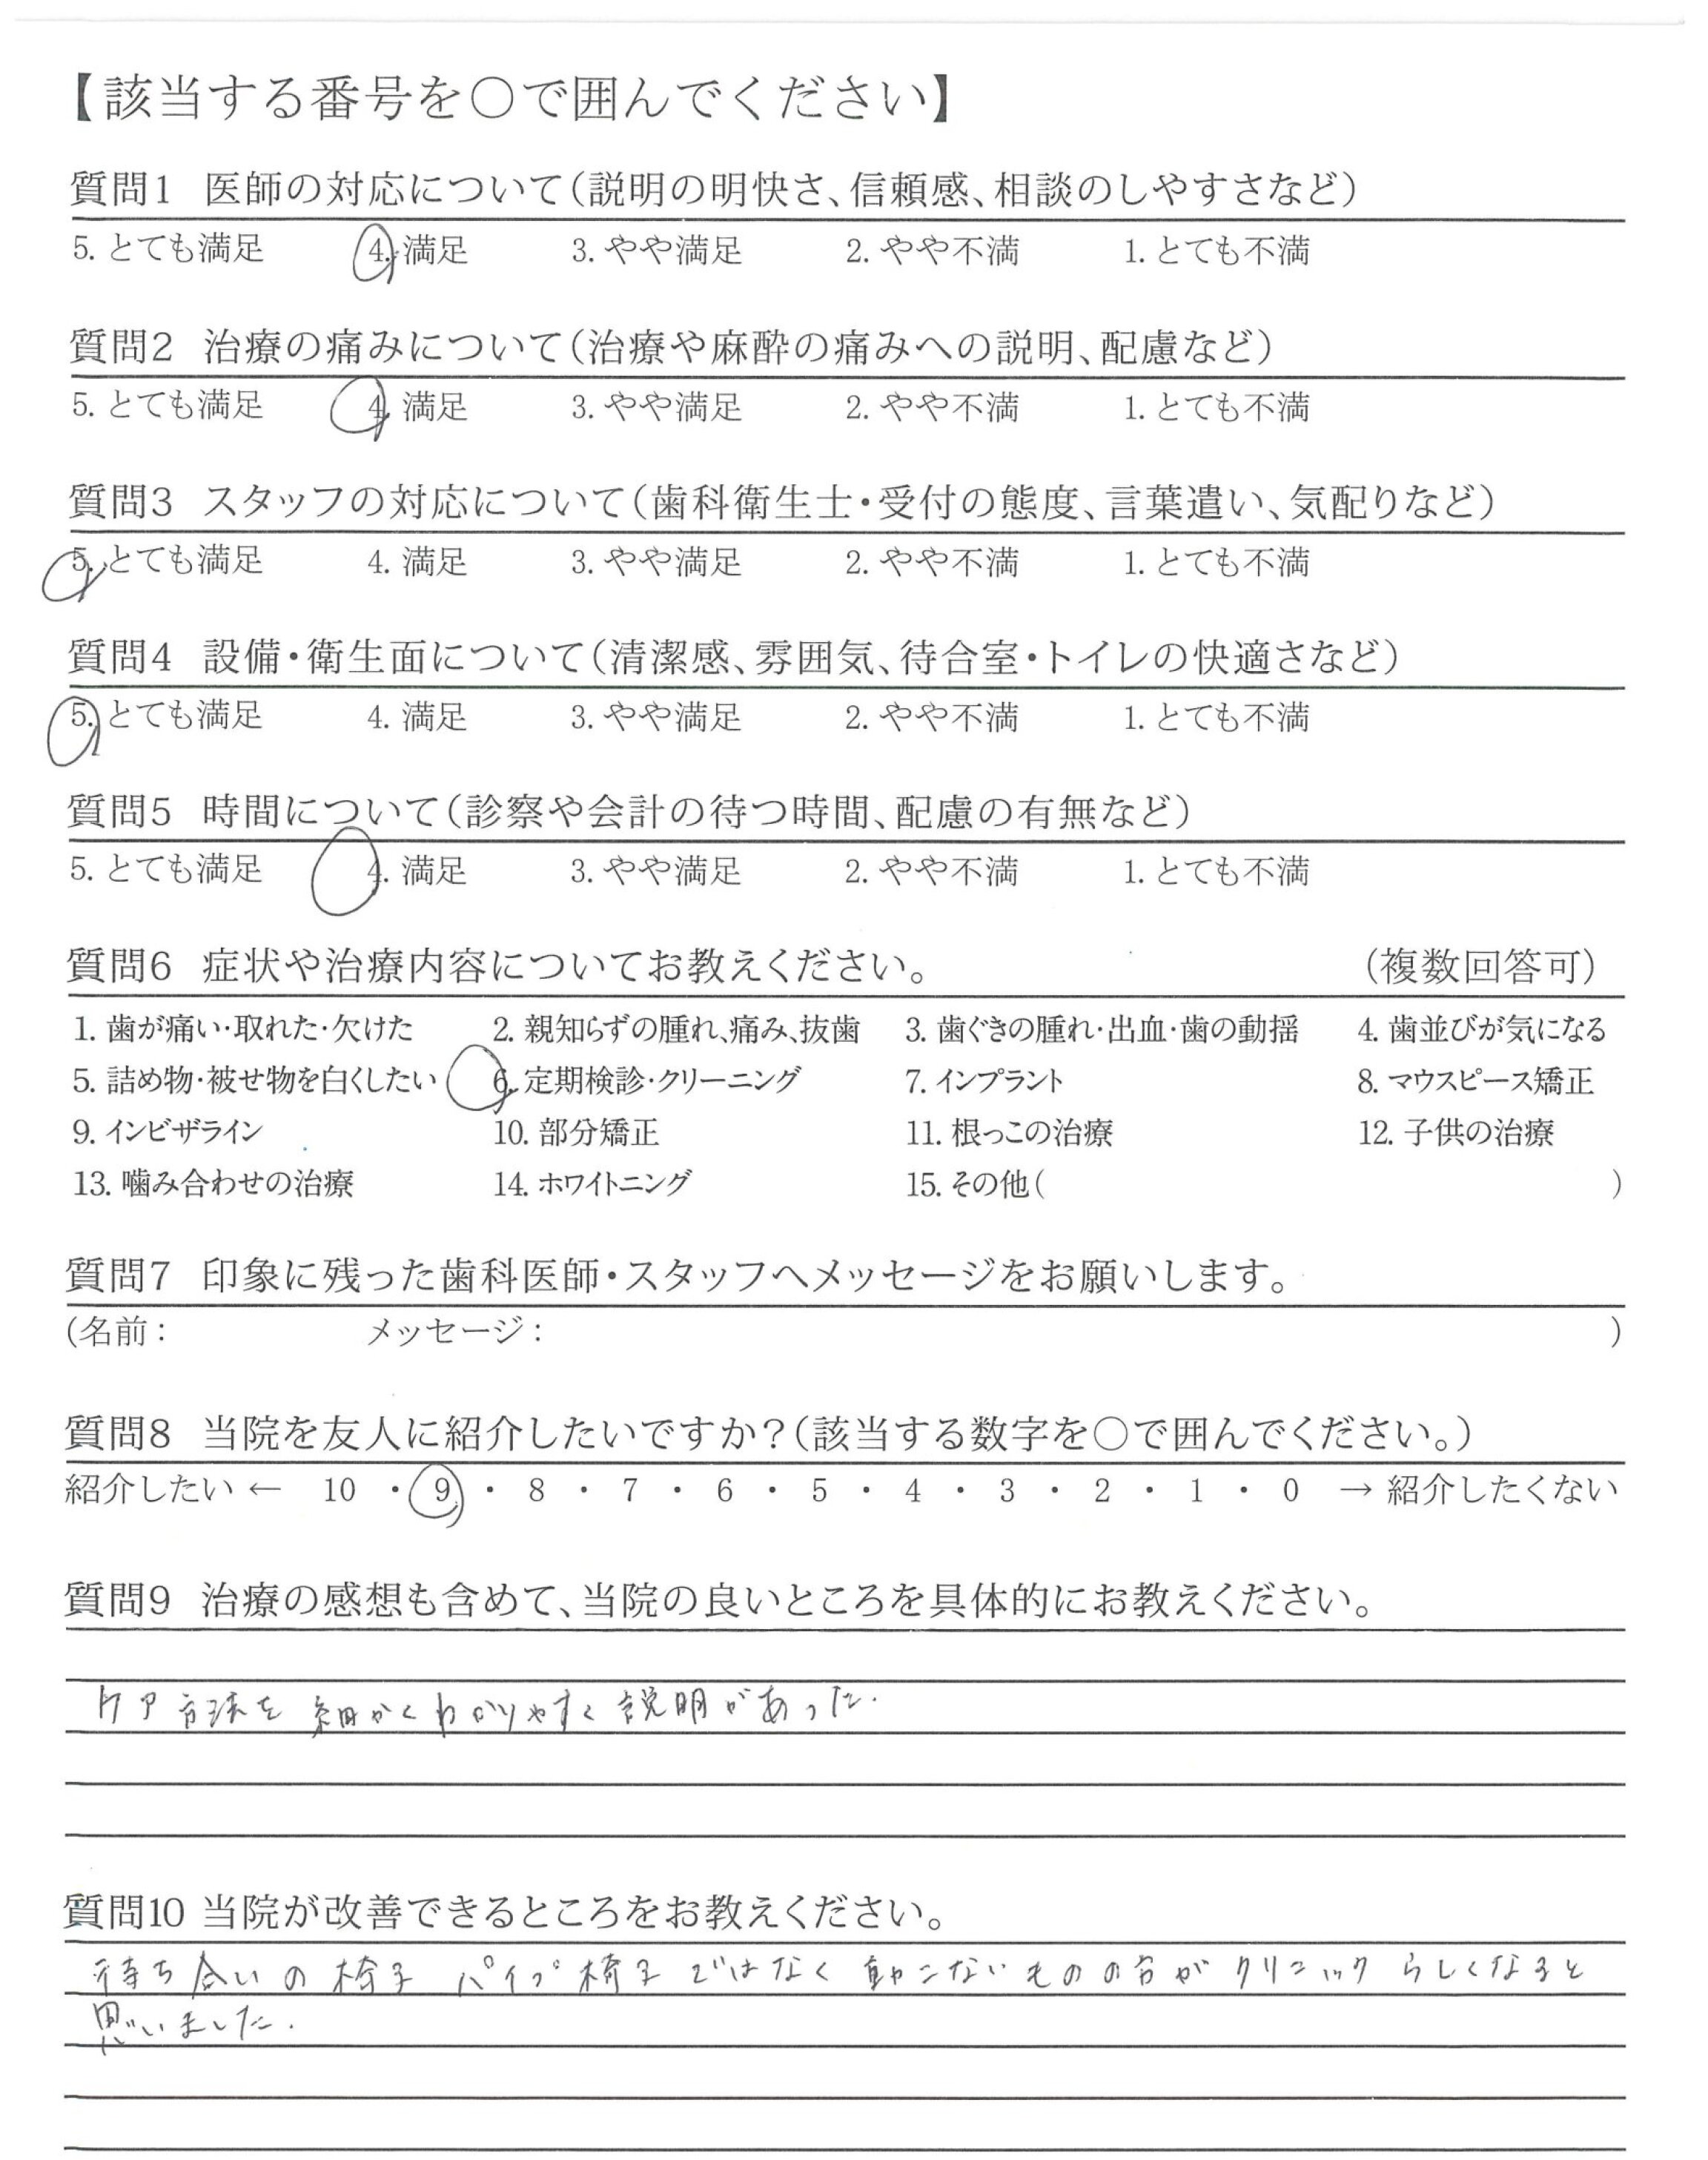 【該当する番号を○で囲んでください】
質問1 医師の対応について(説明の明快さ、信頼感、相談のしやすさなど)
5. とても満足 4. 満足 3. やや満足 2. やや不満 1. とても不満
質問2 治療の痛みについて(治療や麻酔の痛みへの説明、配慮など)
5. とても満足 4. 満足 3. やや満足 2. やや不満 1. とても不満
質問3 スタッフの対応について(歯科衛生士・受付の態度、言葉遣い、気配りなど)
5. とても満足 4. 満足 3. やや満足 2. やや不満 1. とても不満
質問4 設備・衛生面について(清潔感、雰囲気、待合室・トイレの快適さなど)
5. とても満足 4. 満足 3. やや満足 2. やや不満 1. とても不満
質問5 時間について(診察や会計の待つ時間、配慮の有無など)
5. とても満足 4. 満足 3. やや満足 2. やや不満 1. とても不満
質問6 症状や治療内容についてお教えください。 (複数回答可)
1. 歯が痛い・取れた・欠けた 2. 親知らずの腫れ、痛み、抜歯 3. 歯ぐきの腫れ・出血・歯の動揺 4. 歯並びが気になる
5. 詰め物・被せ物を白くしたい 6. 定期検診・クリーニング 7. インプラント 8. マウスピース矯正
9. インビザライン 10. 部分矯正 11. 根っこの治療 12. 子供の治療
13. 噛み合わせの治療 14. ホワイトニング 15. その他( )
質問7 印象に残った歯科医師・スタッフへメッセージをお願いします。
(名前: メッセージ: )
質問8 当院を友人に紹介したいですか?(該当する数字を○で囲んでください。)
紹介したい ← 10 ・ 9 ・ 8 ・ 7 ・ 6 ・ 5 ・ 4 ・ 3 ・ 2 ・ 1 ・ 0 → 紹介したくない
質問9 治療の感想も含めて、当院の良いところを具体的にお教えください。
ケア方法を細かくわかりやすく説明があった.
質問10 当院が改善できるところをお教えください。
待ち合いの椅子 パイプ椅子ではなく動かないものの方がクリニックらしくなると
思いました.